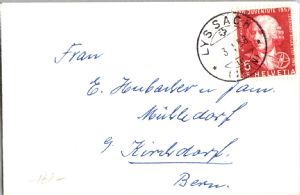 PRO JUVENTUTE 1947
LYSSACH
(BERN)
5
HELVETIA
Frau
E. Hubacher u. fam.
Mühledorf
b/ Kirchdorf
Bern.